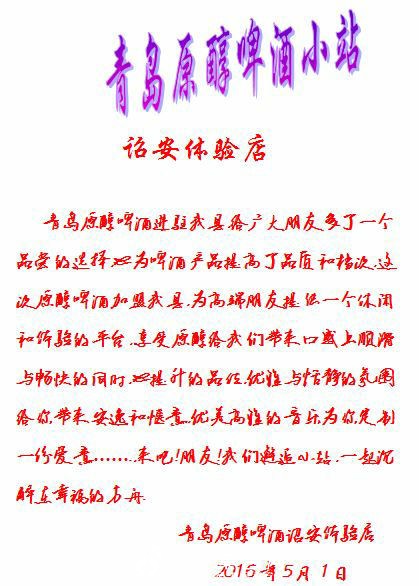 青岛原醇啤酒小站
诏安体验店
青岛原醇啤酒进驻我县给广大朋友多了一个
品尝的选择也为啤酒产品提高了品质和档次,这
次原醇啤酒加盟我县,为高端朋友提供一个休闲
和体验的平台,享受原醇给我们带来口感上顺滑
与畅快的同时,也提升的品位,优雅与恬静的氛围
给你带来安逸和惬意,优美高雅的音乐为你定制
一份爱意……来吧!朋友!我们邂逅小站,一起沉
醉在幸福的方舟
青岛原醇啤酒诏安体验店
2016年5月1日